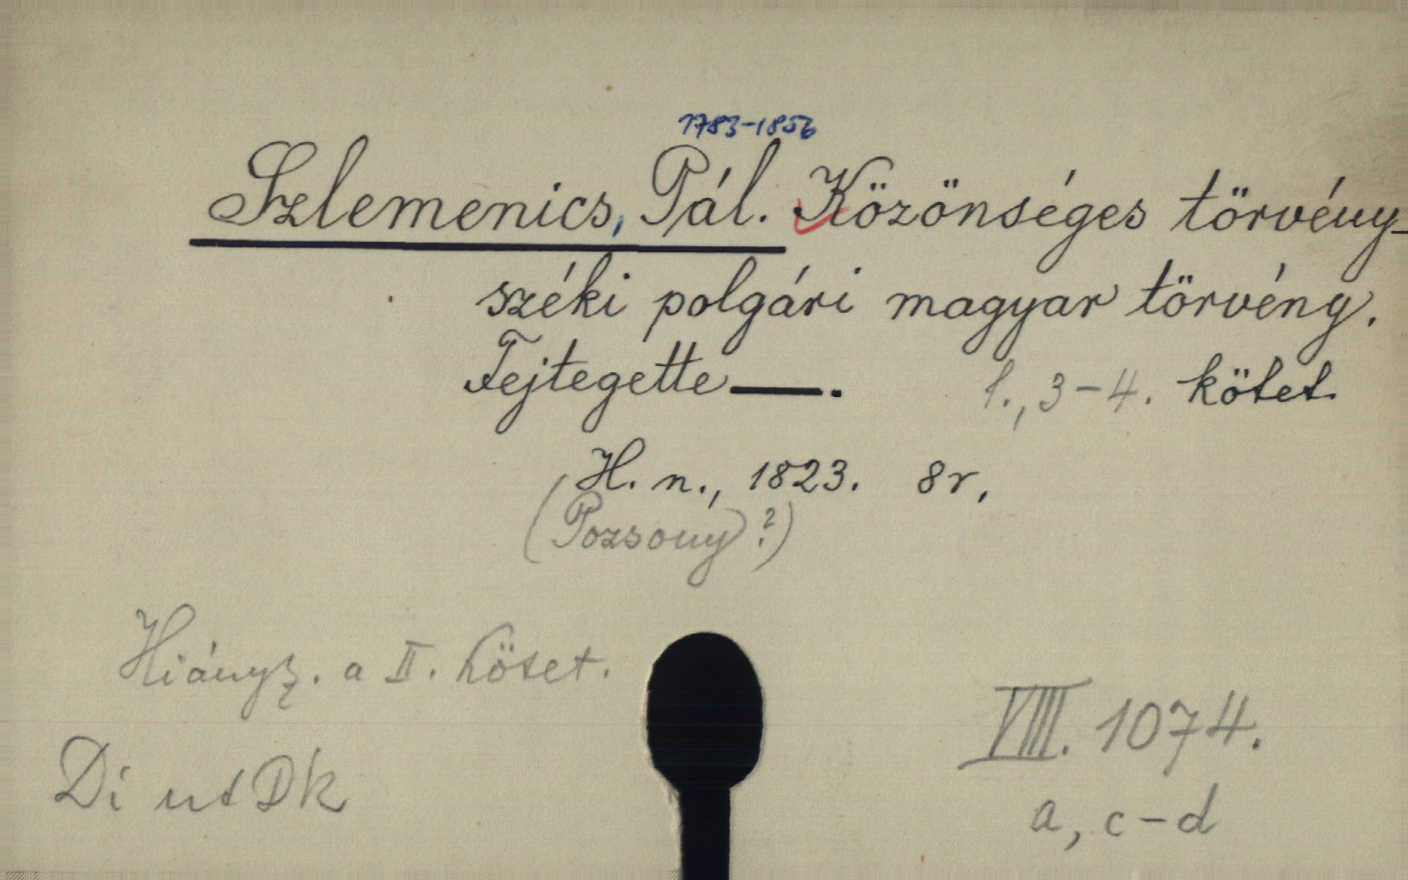 1783-1856
Szlemenics, Pál. Közönséges törvény-
széki polgári magyar törvény.
Fejtegette —. 1., 3-4. kötet.
H. n., 1823. 8r.
(Pozsony?)
Hiányz. a II. kötet.
VIII. 1074.
Di
a, c-d